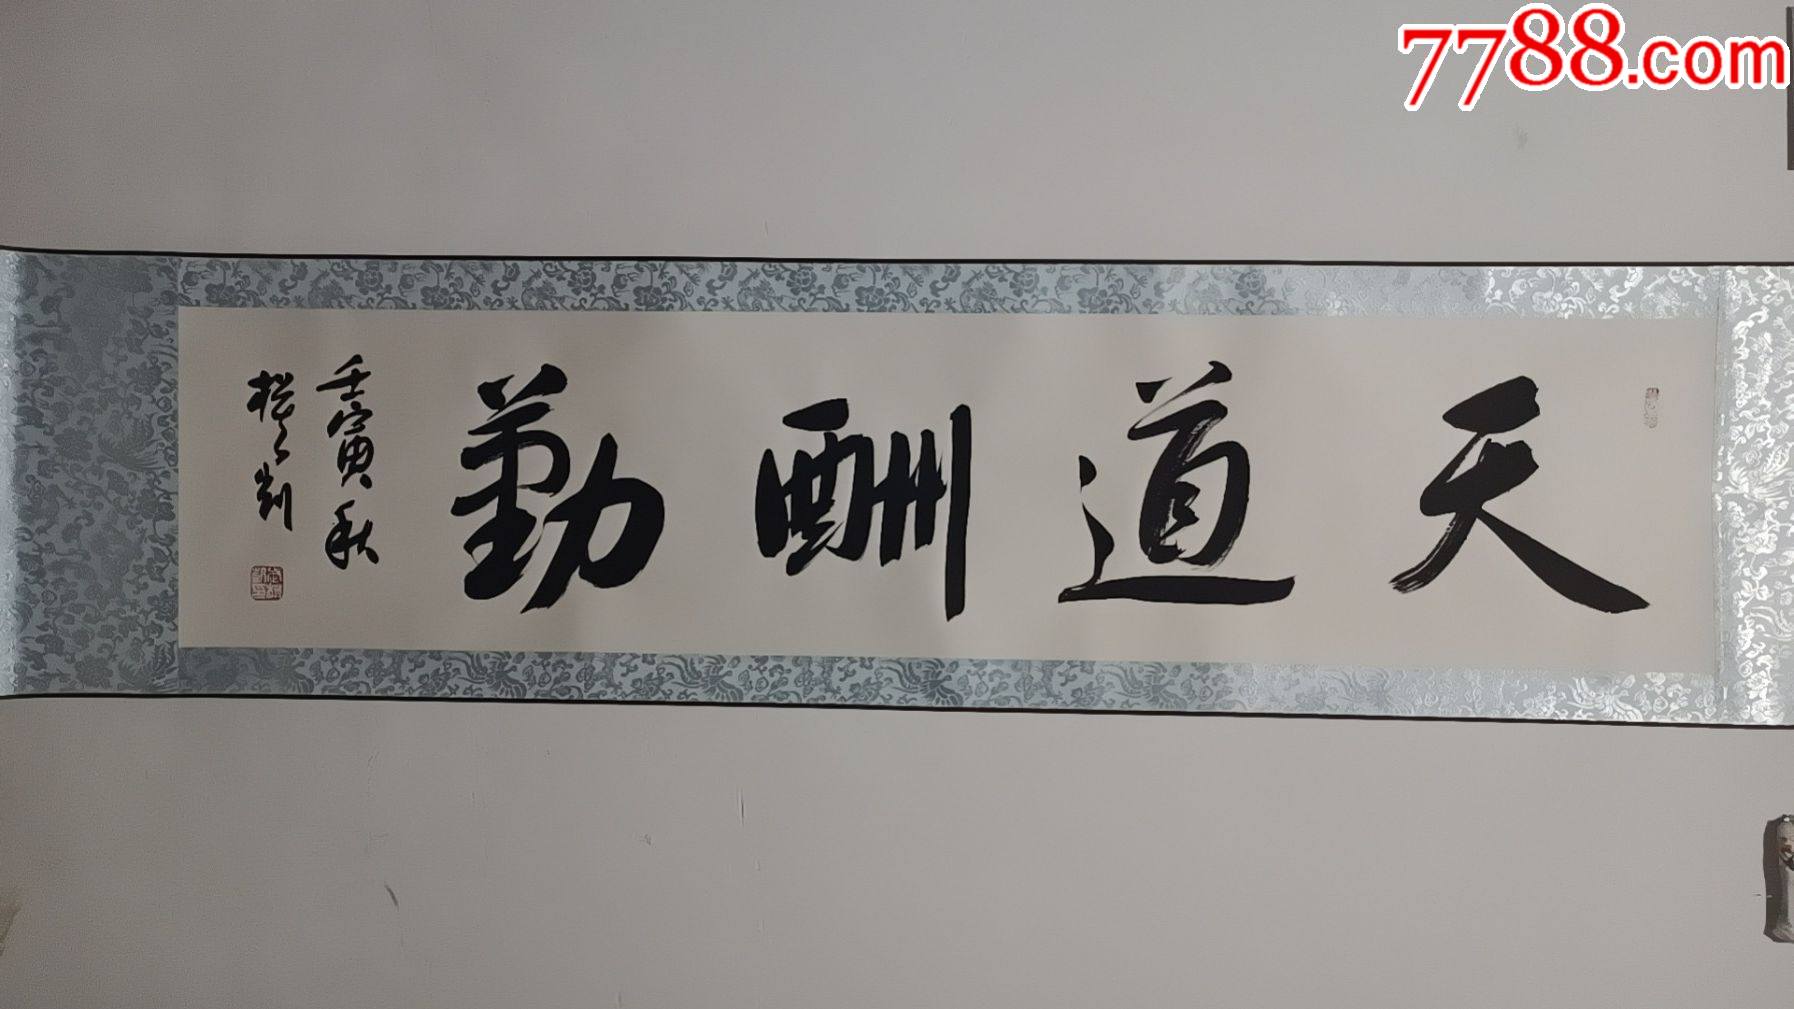 天道酬勤
壬寅秋
7788.com